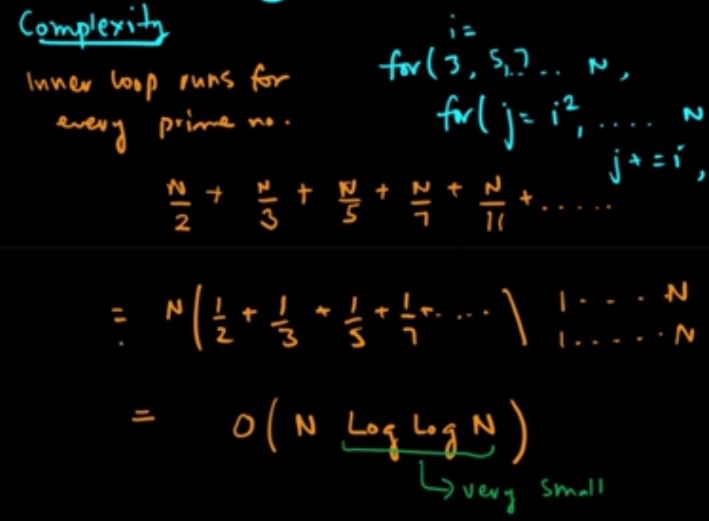 Complexity
Inner loop runs for
every prime no.
i=
for(3, 5,7.. N,
for( j= i², .... N
j+=i,
N/2 + N/3 + N/5 + N/7 + N/11 + .....
= N(1/2 + 1/3 + 1/5 + 1/7 + ....) 1 . . . . N
1 . . . . . . N
= O( N Log Log N )
↳ very small